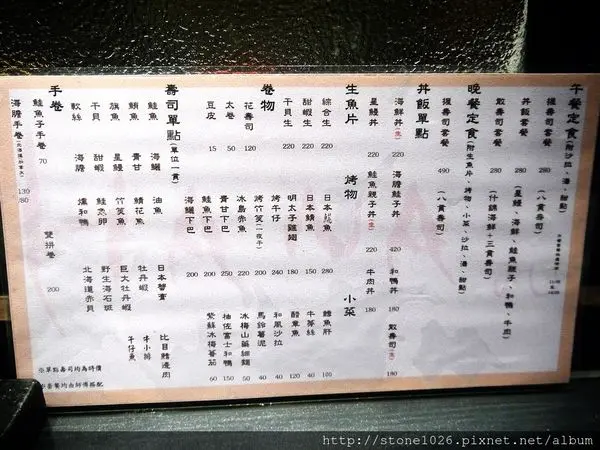 午餐定食(附沙拉、湯、甜點)
握壽司套餐 280 (八貫壽司)
丼飯套餐 280 (星鰻、海鮮、鮭魚親子、和鴨、牛肉)
散壽司套餐 280 (什錦海鮮+三貫壽司)
晚餐定食(附生魚片、烤物、小菜、沙拉、湯、甜點)
握壽司套餐 490 (八貫壽司)
丼飯單點
海鮮丼(生) 220
海膽鮭子丼 420
和鴨丼 180
散壽司(生) 180
星鰻丼 220
鮭魚親子丼(生) 220
牛肉丼 180
生魚片
綜合生 220
甜蝦生 220
干貝生 220
卷物
花壽司 120
太卷 50
豆皮 15
烤物
日本鯣魚 180
日本鯖魚 150
明太子雞翅 180
烤牛仔 240
烤竹筴(一夜干) 200
冰島赤魚 250
青甘下巴 200
鮭魚下巴 200
海鱺下巴 200
小菜
鱈魚肝 100
牛蒡絲 40
醋章魚 120
和風沙拉 40
馬鈴薯泥 40
冰梅山藥細麵 50
柚佐富士和鴨 150
紫蘇冰梅蕃茄 60
壽司單點(單位一貫)
鮭魚
海鱺
油魚
日本蟹膏
比目鰭邊肉
鮪魚
青甘
鯖花魚
牡丹蝦
牛小排
旗魚
星鰻
竹筴魚
巨大牡丹蝦
午仔魚
干貝
甜蝦
鮭魚卵
野生海石斑
軟絲
海膽
燻和鴨
北海道赤貝
手卷
鮭魚子手卷 70
雙拼卷 200
※單點壽司均為時價
※套餐均由師傅搭配
http://stone1026.pixnet.net/album